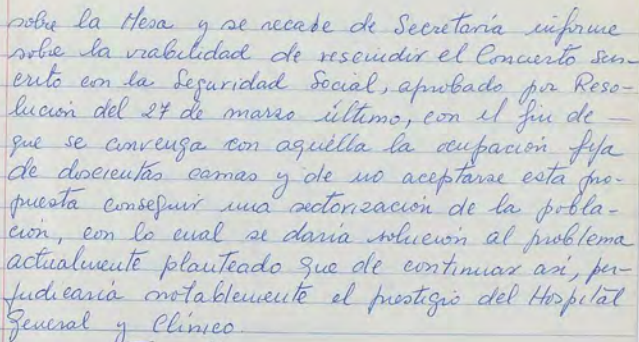 sobre la Mesa y se recabe de Secretaría informe
sobre la viabilidad de rescindir el Concierto sus-
crito con la Seguridad Social, aprobado por Reso-
lución del 27 de marzo último, con el fin de -
que se convenga con aquélla la ocupación fija
de doscientas camas y de no aceptarse esta pro-
puesta conseguir una sectorización de la pobla-
ción, con lo cual se daría solución al problema
actualmente planteado que de continuar así, per-
judicaría notablemente el prestigio del Hospital
General y Clínico.